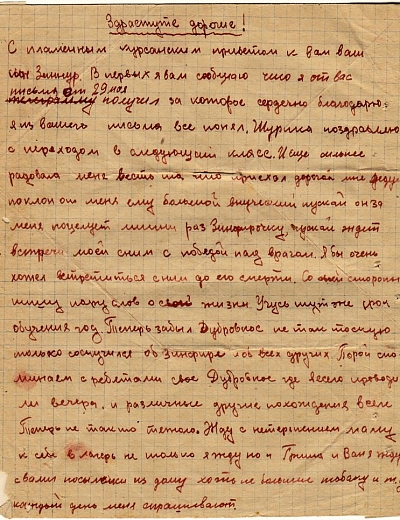 Здраствуте дороие!
С пламенным курсанским приветом к вам ваш
сын Зиннур. В первых я вам сообщаю что я от вас
письма от 29 мая
получил за которое сердечно благодарю
я из вашего письма все понял. Шурика поздравляю
с переходом в следующий класс. И еще
радовала меня весть та что приехал дорогой мне дедушка
поклон от меня ему большой внучений пускай он за
меня поцелует раз пускай ждет
встречи моей с ним с победой над врагом. Я бы очень
хотел встретиться с ним до его смерти. Со своей стороны
пишу пару слов о своей жизни. Учусь тут же срок
обучения год. Теперь забыл Дубровное не так тоскую
только соскучился об и об всех других. Порой спо
минаем с ребятами свое Дубровное где весело проводи
ли вечера, и различные другие похождения всего
Теперь не так то тяжело. Жду с нетерпением маму
к себе в лагерь не только я жду но и Гриша и Ваня жду
с вами посылки из дому хоть не большие табаку и
каждый день меня спрашивают.